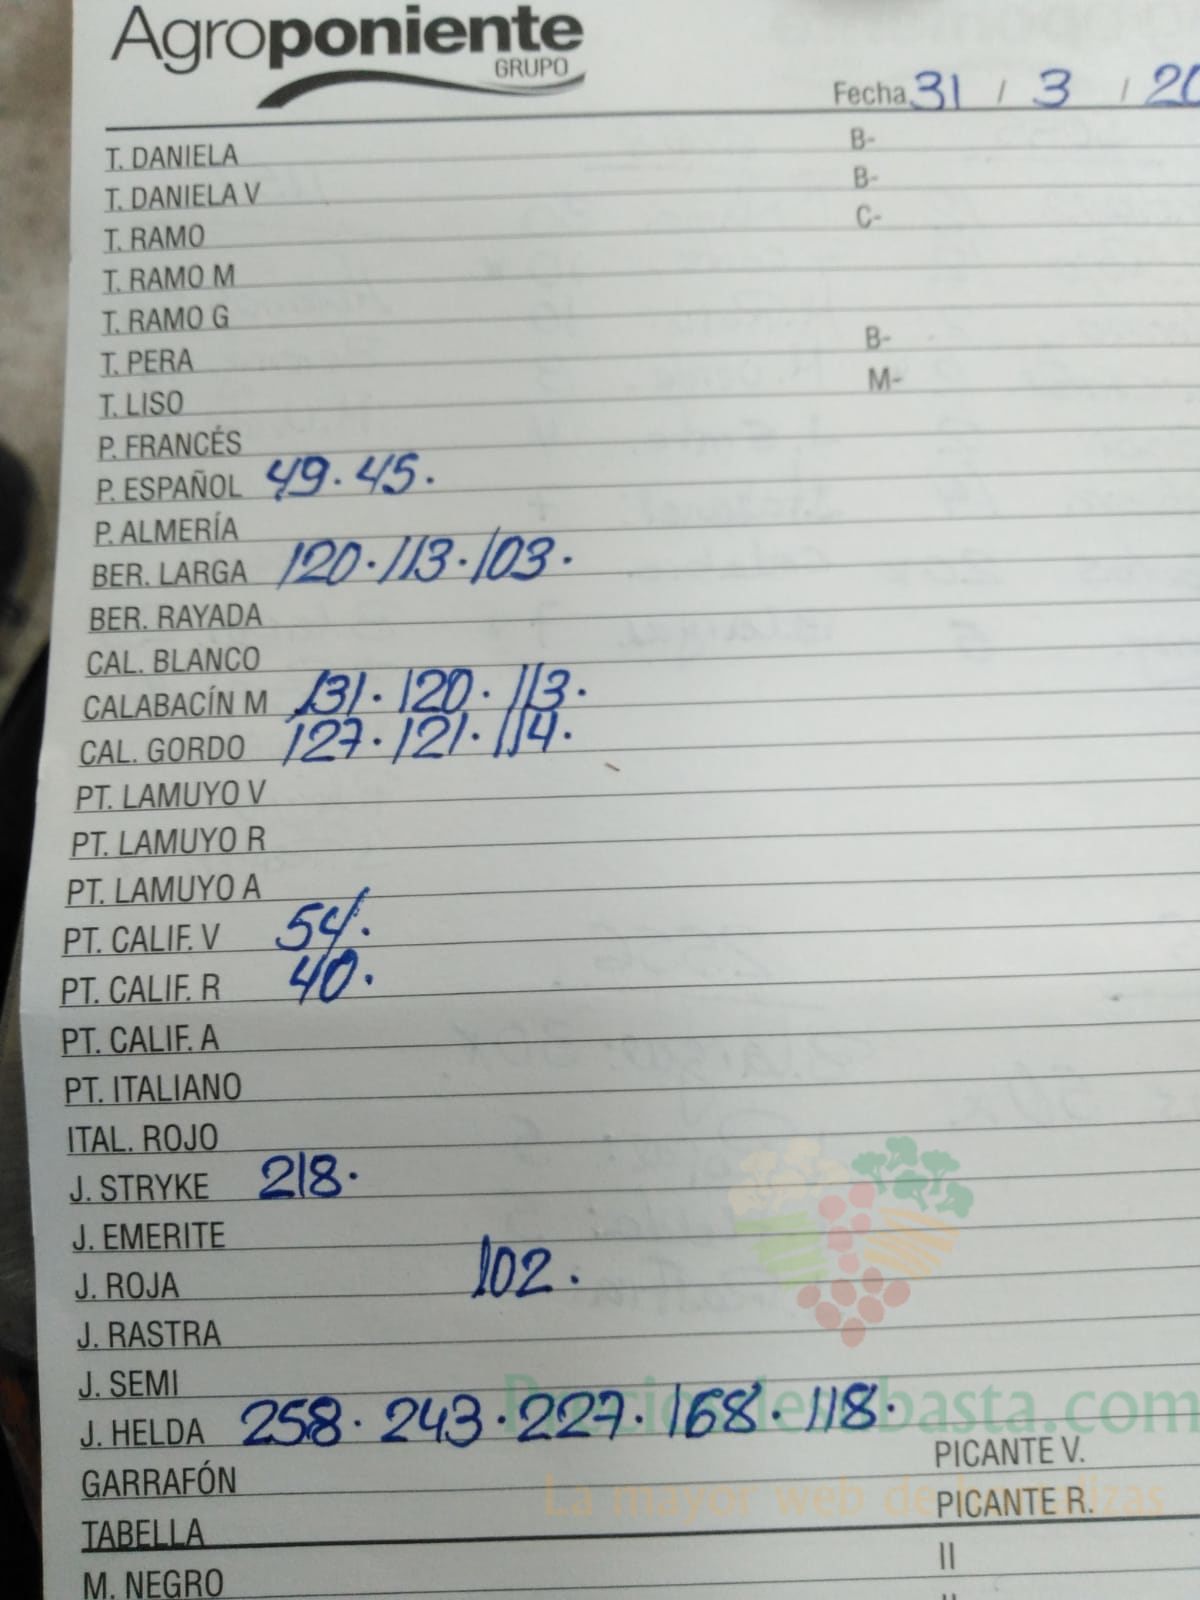 Agroponiente
GRUPO
Fecha 31 / 3 / 20
T. DANIELA B-
T. DANIELA V B-
T. RAMO C-
T. RAMO M
T. RAMO G
T. PERA B-
T. LISO M-
P. FRANCÉS
P. ESPAÑOL 49. 45.
P. ALMERÍA
BER. LARGA 120. 113. 103.
BER. RAYADA
CAL. BLANCO
CALABACÍN M 131. 120. 113.
CAL. GORDO 127. 121. 114.
PT. LAMUYO V
PT. LAMUYO R
PT. LAMUYO A
PT. CALIF. V 54.
PT. CALIF. R 40.
PT. CALIF. A
PT. ITALIANO
ITAL. ROJO
J. STRYKE 218.
J. EMERITE
J. ROJA 102.
J. RASTRA
J. SEMI
J. HELDA 258. 243. 227. 168. 118.
GARRAFÓN PICANTE V.
La mayor web de hortalizas
TABELLA PICANTE R.
M. NEGRO II